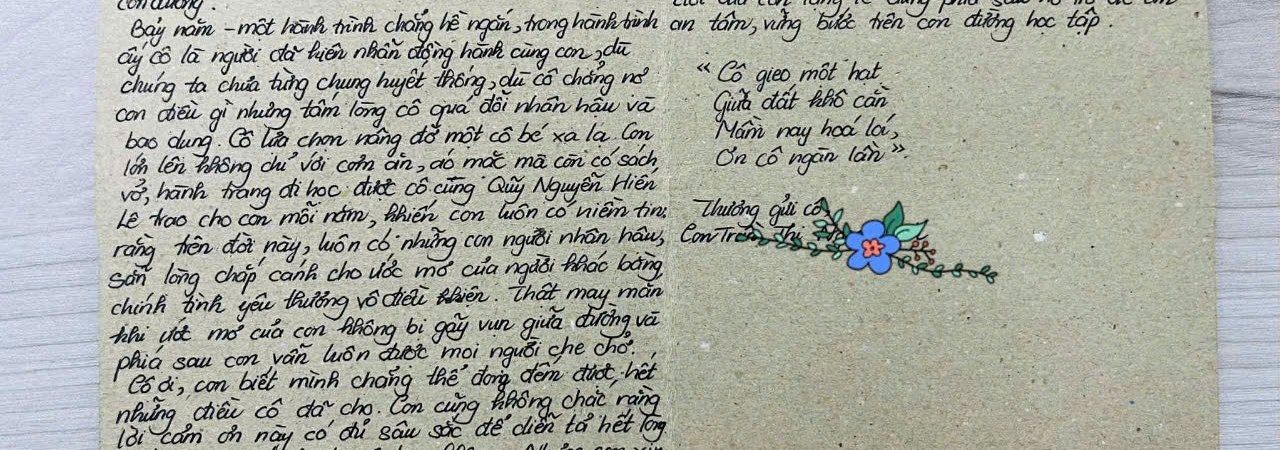 con đường.
Bảy năm – một hành trình chẳng hề ngắn, trong hành trình
ấy cô là người đã hiền nhân động hành cùng con, dù
chúng ta chưa từng chung huyết thống, dù cô chẳng nợ
con điều gì nhưng tấm lòng cô quá đỗi nhân hậu và
bao dung. Cô lựa chọn nâng đỡ một cô bé xa lạ. Con
lớn lên không chỉ với cơm ăn, áo mặc mà còn có sách
vở, hành trang đi học được cô cùng Quỹ Nguyễn Hiến
Lê trao cho con mỗi năm, khiến con luôn có niềm tin:
rằng trên đời này, luôn có những con người nhân hậu,
sẵn lòng chắp cánh cho ước mơ của người khác bằng
chính tình yêu thương vô điều khiện. Thật may mắn
khi ước mơ của con không bị gãy vụn giữa đường và
phía sau con vẫn luôn được mọi người che chở.
Cô ơi, con biết mình chẳng thể đong đếm được hết
những điều cô đã cho. Con cũng không chắc rằng
lời cảm ơn này có đủ sâu sắc để diễn tả hết lòng
an tâm, vững bước trên con đường học tập.
“ Cô gieo một hạt
Giữa đất khô cằn
Mầm nay hoá lá,
Ơn cô ngàn lần ”.
Thương gửi cô,
Con Trần Thị